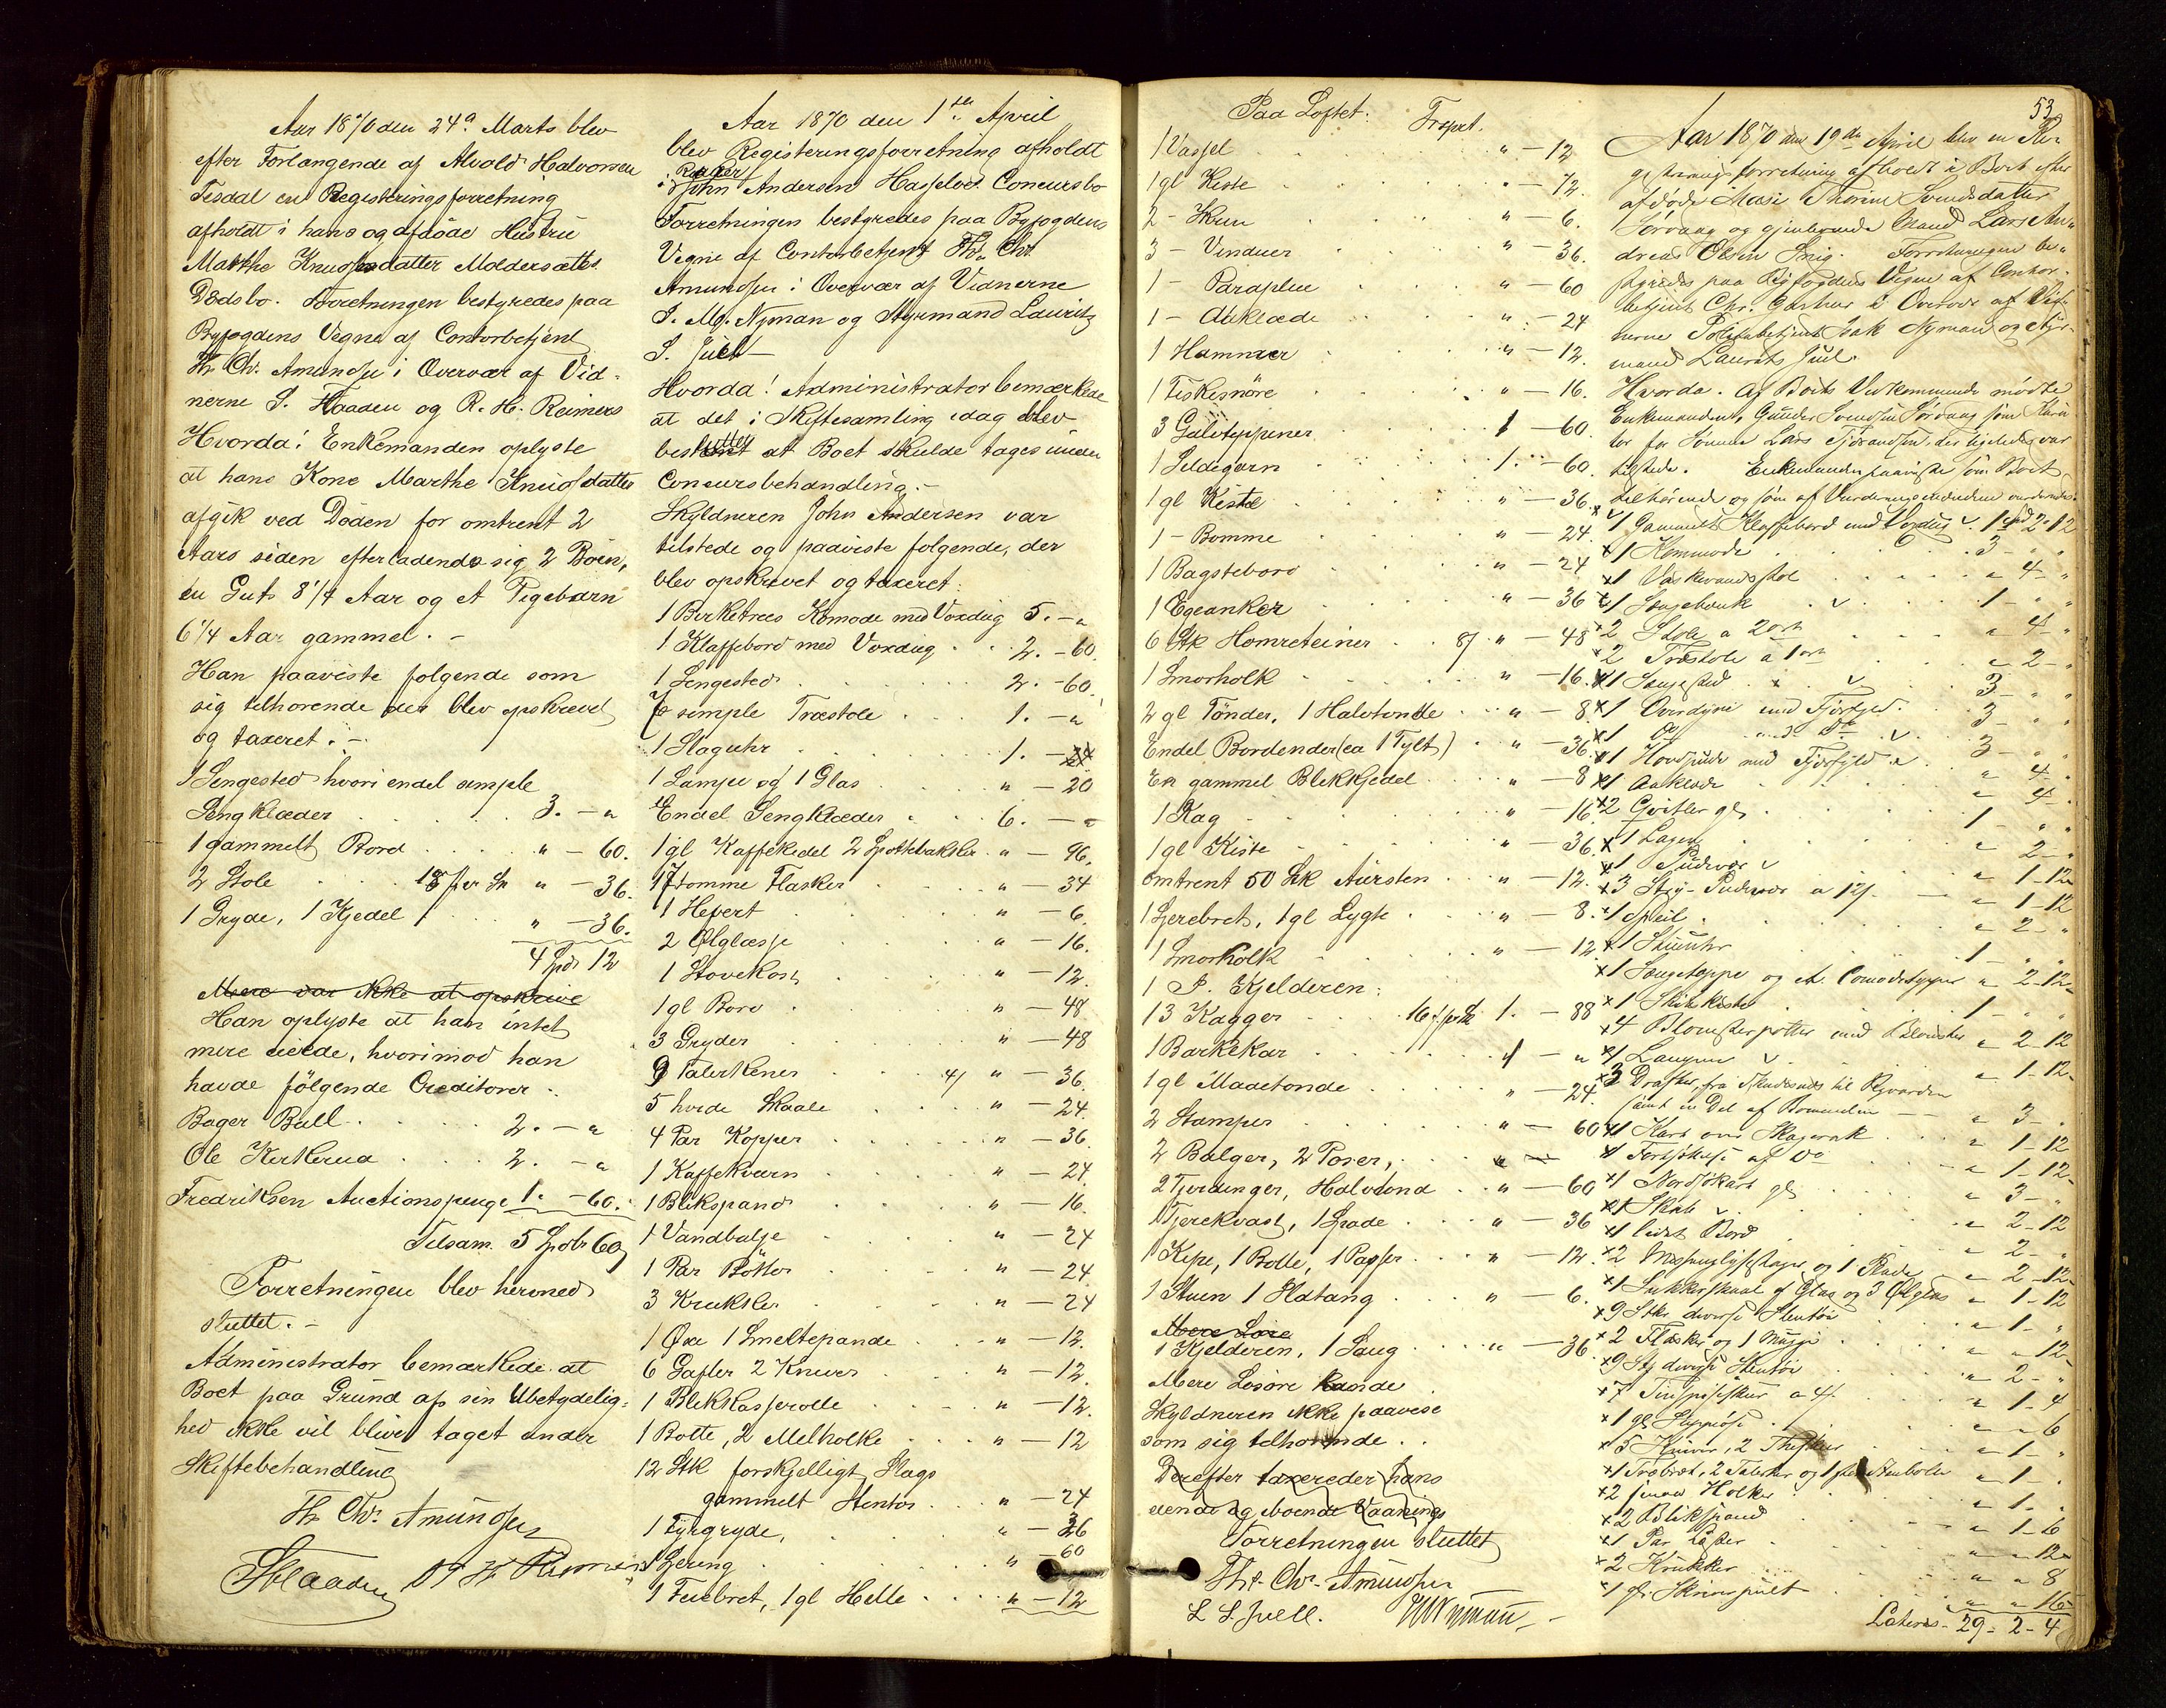 Aar 1870 den 24de Marts blev
efter Forlangende af Alvald Halvorsen
Tesdal en Registeringsforretning
afholdt i hans og afdöde Hustru
Marthe Knudsdatter Moldersættes
Dødsbo. Forretningen bestyredes paa
Byfogdens Vegne af Contorbetjent
Th. Chr. Amundsen i Overvær af Vid-
nerne S. Haaden og R. H. Reimers
Hvorda! Enkemanden oplyste
at hans Kone Marthe Knudsdatter
afgik ved Døden for omtrent 2
Aars siden efterladende sig 2 Børn,
en Gut 8 1/4 Aar og et Pigebarn
6 1/4 Aar gammel. -
Han paaviste følgende som
sig tilhörende der blev opskrevet
og taxeret. -
1 Sengested hvori endel simple
Sengklæder . . . 3. - "
1 gammelt Bord . . . " - 60.
2 Stole . . 18 s per St " - 36.
1 Gryde, 1 Kjedel . . " - 36.
4 Spd 12
Mere var ikke at opskrive
Han oplyste at han intet
mere eiede, hvorimod han
havde følgende Creditorer:
Bager Bull . . . 2. - "
Ole Kerklerud . . . 2. - "
Fredriksen Auctionspenge 1. - 60.
Tilsam. 5 Spdr 60
Forretningen blev hermed
sluttet. -
Administrator bemærkede at
Boet paa Grund af sin Ubetydelig-
hed ikke vil blive taget under
Skiftebehandling
Th. Chr. Amundsen
S Haaden R H Reimers
Aar 1870 den 1ste April
blev Registeringsforretning afholdt
i John Andersen Hasselød Concursbo
Forretningen bestyredes paa Byfogdens
Vegne af Contorbetjent Th. Chr.
Amundsen i Overvær af Vidnerne
I. M. Nyman og Styrmand Lauritz
S. Juell -
Hvorda! Administrator bemærkede
at det i Skiftesamling idag blev
besluttet at Boet skulde tages under
Concursbehandling. -
Skyldneren John Andersen var
tilstede og paaviste følgende, der
blev opskrevet og taxeret:
1 Birketræes Komode med Voxdug 5. - "
1 Klaffebord med Voxdug . . 2. - 60.
1 Sengested . . . 2. - 60.
7 simple Træstole . . 1. - "
1 Slaguhr . . . 1. - 24
1 Lampe og 1 Glas . . " - 20
Endel Sengklæder . . 6. - "
1 gl Kaffekedel 2 Spyttebakker . " - 96.
17 tomme Flasker . . " - 34
1 Hevert . . " - 6.
2 Ølglasse . . " - 16.
1 Stovekost . . " - 12.
1 gl Bord . . " - 48
3 Gryder . . " - 48
9 Talerkener . . 4/ " - 36.
5 hvide Skaale . . " - 24.
4 Par Kopper . . " - 36.
1 Kaffekværn . . " - 24.
1 Blikspand . . " - 16.
1 Vandbalje . . " - 24
1 Par Bötter . . " - 24.
3 Krukker . . " - 24
1 Øxe 1 Smeltepande . . " - 12.
6 Gafler 2 Knive . . " - 12.
1 Blikkasserolle . . " - 12.
1 Botte, 2 Melholke . . " - 12
12 Stk forskjelligt Slags
gammelt Stentøi . . " - 24
1 Tyrgryde, . . " - 36
1 Gjering . . " - 60
1 Feiebret, 1 gl Helle . . " - 12
Paa Loftet: Trsprt.
1 Vassel . . " - 12
1 gl Kiste . . " - 12.
2 - Skrin . . " - 6.
3 - Vinduer . . " - 36.
1 - Paraplue . . " - 60
1 - Aaklæde . . " - 24
1 Hammer . . " - 12.
1 Fiskesnöre . . " - 16.
3 Gulvtæppener . . 1 - 60.
1 Sildegarn . . 1. - 60.
1 gl Kiste . . " - 36.
1 - Bomme . . " - 24.
1 Bagstebord . . " - 24
1 Egeanker . . " - 36
6 Stk Homreteiner . . 8/ " - 48
1 Smørholk . . " - 16.
2 gl Tönder, 1 Halvtønde . . " - 8.
Endel Bordender (ca 1 Tylt) . " - 36.
En gammel Blikkjedel . . " - 8
1 Kag . . " - 16
1 gl Kiste . . " - 36.
omtrent 50 Stk Aursten . . " - 12.
1 Fjerebret, 1 gl Lygte . . " - 8.
1 Smørholk . . " - 12
I Kjelderen:
13 Kagger . . 16 s per Stk 1. - 88
1 Barkekar . . 1 - "
1 gl Madetonde . . " - 24.
2 Stamper . . " - 60
2 Balger, 2 Poser,
2 Fjerdinger, Halvtond . . " - 60
1 Tjærekvast, 1 Spade . . " - 36
1 Kipe, 1 Bolle, 1 Passer . . " - 12.
1 Skuen 1 Ildtang . . " - 6.
Mere Løse
I Kjelderen, 1 Saug . . " - 36.
Mere Løsøre kunde
Skyldneren ikke paavise
som sig tilhörende . .
Derefter taxereder hans
eiende og iboende Vaaning
Forretningen sluttet
Th. Chr. Amundsen
L S. Juell. IMNyman -
53
Aar 1870 den 19de April blev en Re-
gistreringsforretning afholdt i Boet efter
afdøde Mari Thorine Svendsdatter
Sørvaag og gjenlevende Mand Lars An-
dreas Olsen Snig. Forretningen be-
styredes paa Byfogdens Vegne af Contor-
betjent Chr. Garhus i Overvær af Vid-
nerne Politibetjent Isak Nyman og Styr-
mand Laurits Juel.
Hvorda. Af Boets Vedkommende mødte
Enkemanden, Gunder Svendsen Sørvaag som Kura-
tor for Sønnen Lars Tjörandsen, der ligeledes var
tilstede. Enkemanden paaviste som Boet
tilhørende og som af Vurderingsmændene vurderedes
1 Gammelt Klaffebord med Voxdug 1 Spd 2 - 12
x 1 Kommode . . 3 - " "
x 1 Vaskevandsstol . . " 4 - "
x 1 Sengebænk . . 1 - " "
x 2 Stole a 2 ort . . " 4 - "
x 2 Træstole a 1 ort . . " 2 - "
x 1 Sengested . . 3 - " "
x 1 Overdyne med Fjærfyld . . 3 - " "
x 1 Do . . 3 - " "
x 1 Hovedpude med Fjærfyld . " 4 - "
x 1 Aaklæde . . " 4 - "
x 2 Gjvitler gl . . 1 - " "
x 1 Lagen . . " 2 - "
x 1 Pudevar . . " 1 - 12
x 3 Stry-Pudevar a 12/ . . " 1 - 12
x 1 Speil . . " 2 - "
x 1 Stueuhr . . 1 - " "
x 1 Sengeteppe og et Comodetæppe " 2 - 12
x 1 Skibskiste . . 1 - " "
x 4 Blomsterpotter med Blomster " 2 - 12
x 1 Lampe . . " 1 - 12
x 3 Drafter, fra Skudesnæs til Ryvarden
samt en Del af Bommelen - - " 3 - "
x 1 Kart over Skagerak . . " 1 - 12
x 1 Forthøielse af Do . . " 1 - 12
x 1 Nordsjökart gl . . " 3 - "
x 1 Skab . . " 2 - 12
x 1 lidet Bord . . " 2 - "
x 2 Messinglysestager og 1 Plade " 2 - 12
x 1 Sukkerskaal af Glas og 3 Ølglas " 1 - 12
x 9 Stkr diverse Stentøi . . " 1 - "
x 2 Flasker og 1 Mugge . . " " 12
x 9 St diverse Stentøi . . " 2 - "
x 7 Tinspiseskeer a 4/ . . " 1 - 4
x 1 gl Sleppøse . . " " 6
x 5 Knive, 2 Theskeer . . " 1 - "
x 1 Træbret, 2 Talerker og 1 Stenbolle " 1 - "
x 2 smaa Holker . . " 1 - "
x 2 Blikspand . . " 1 - 6
x 1 Par Lester . . " " 12
x 2 Krukker . . " " 8
x 1 gl Skriverpult . . " " 16
Lateris - 29 - 2 - 4